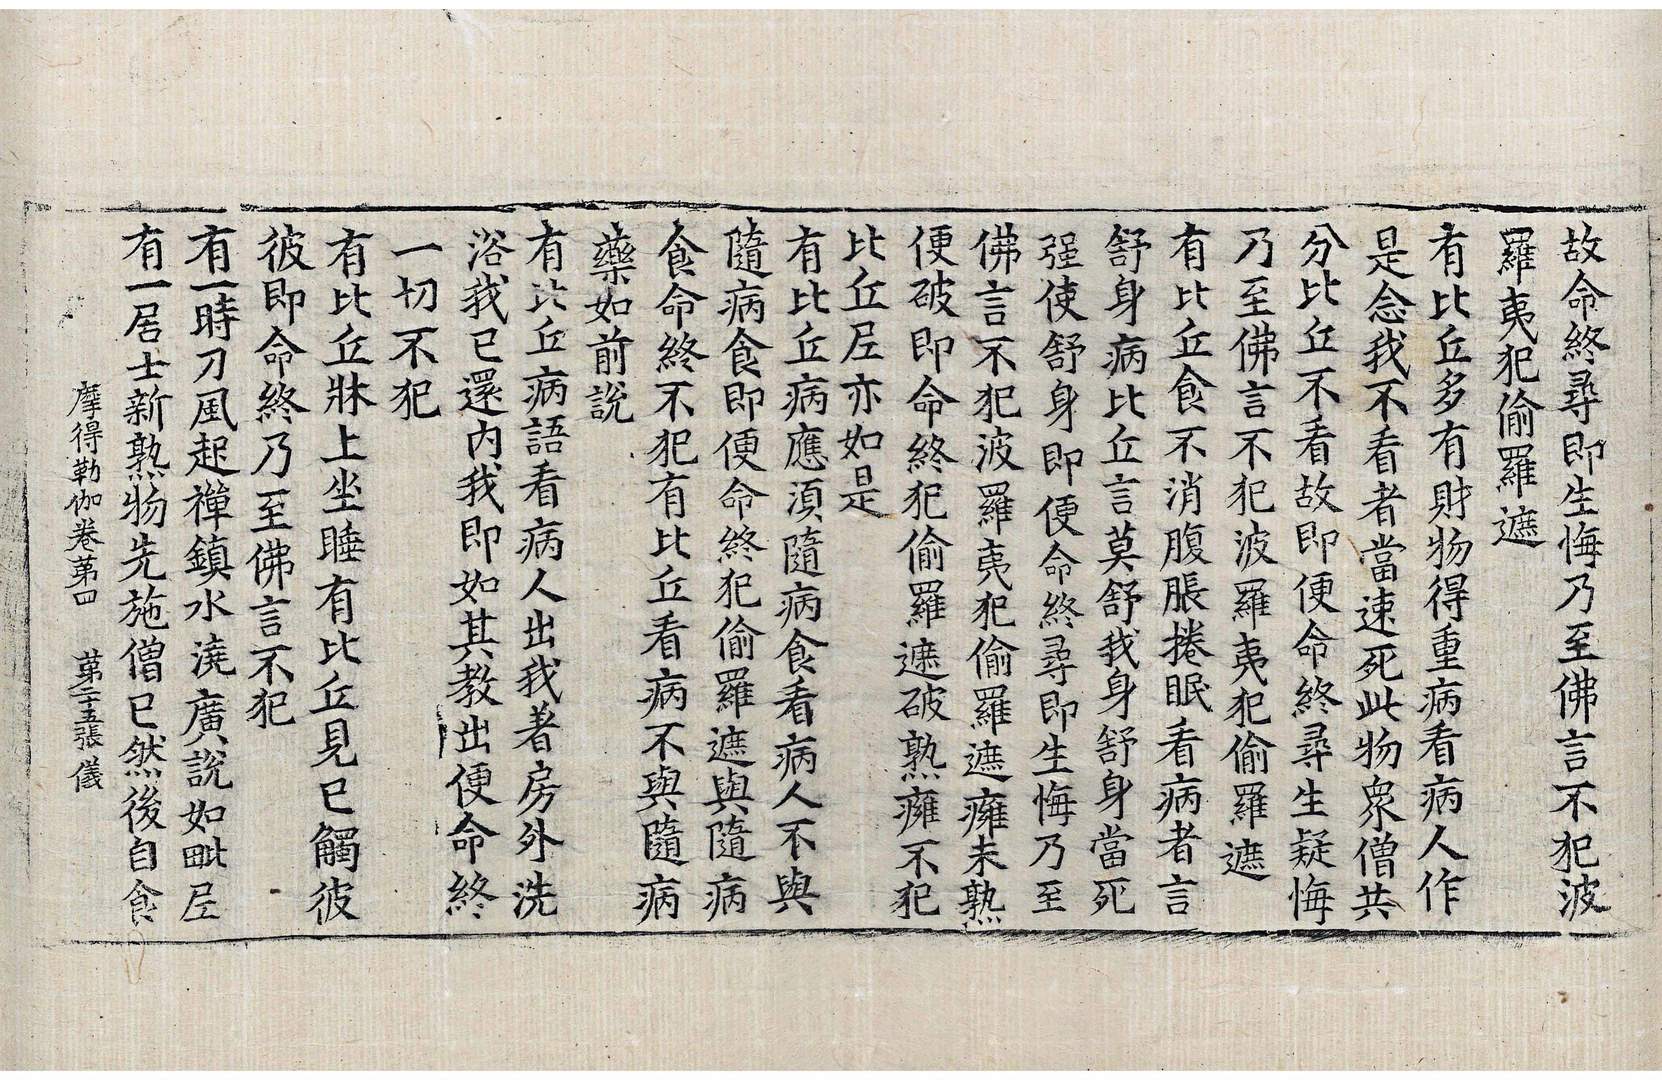 故命終尋即生悔乃至佛言不犯波
羅夷犯偷羅遮
有比丘多有財物得重病看病人作
是念我不看者當速死此物衆僧共
分比丘不看故即便命終尋生疑悔
乃至佛言不犯波羅夷犯偷羅遮
有比丘食不消腹脹捲眠看病者言
舒身病比丘言莫舒我身舒身當死
强使舒身即便命終尋即生悔乃至
佛言不犯波羅夷犯偷羅遮癰未熟
便破即命終犯偷羅遮破熟癰不犯
比丘尼亦如是
有比丘病應湏隨病食看病人不與
隨病食即便命終犯偷羅遮與隨病
食命終不犯有比丘看病不與隨病
藥如前說
有比丘病語看病人出我著房外洗
浴我已還內我即如其教出便命終
一切不犯
有比丘牀上坐睡有比丘見已觸彼
彼即命終乃至佛言不犯
有一時刀風起禪鎮水澆廣說如毗尼
有一居士新熟物先施僧已然後自食
摩得勒伽卷第四 第二十五張 儀